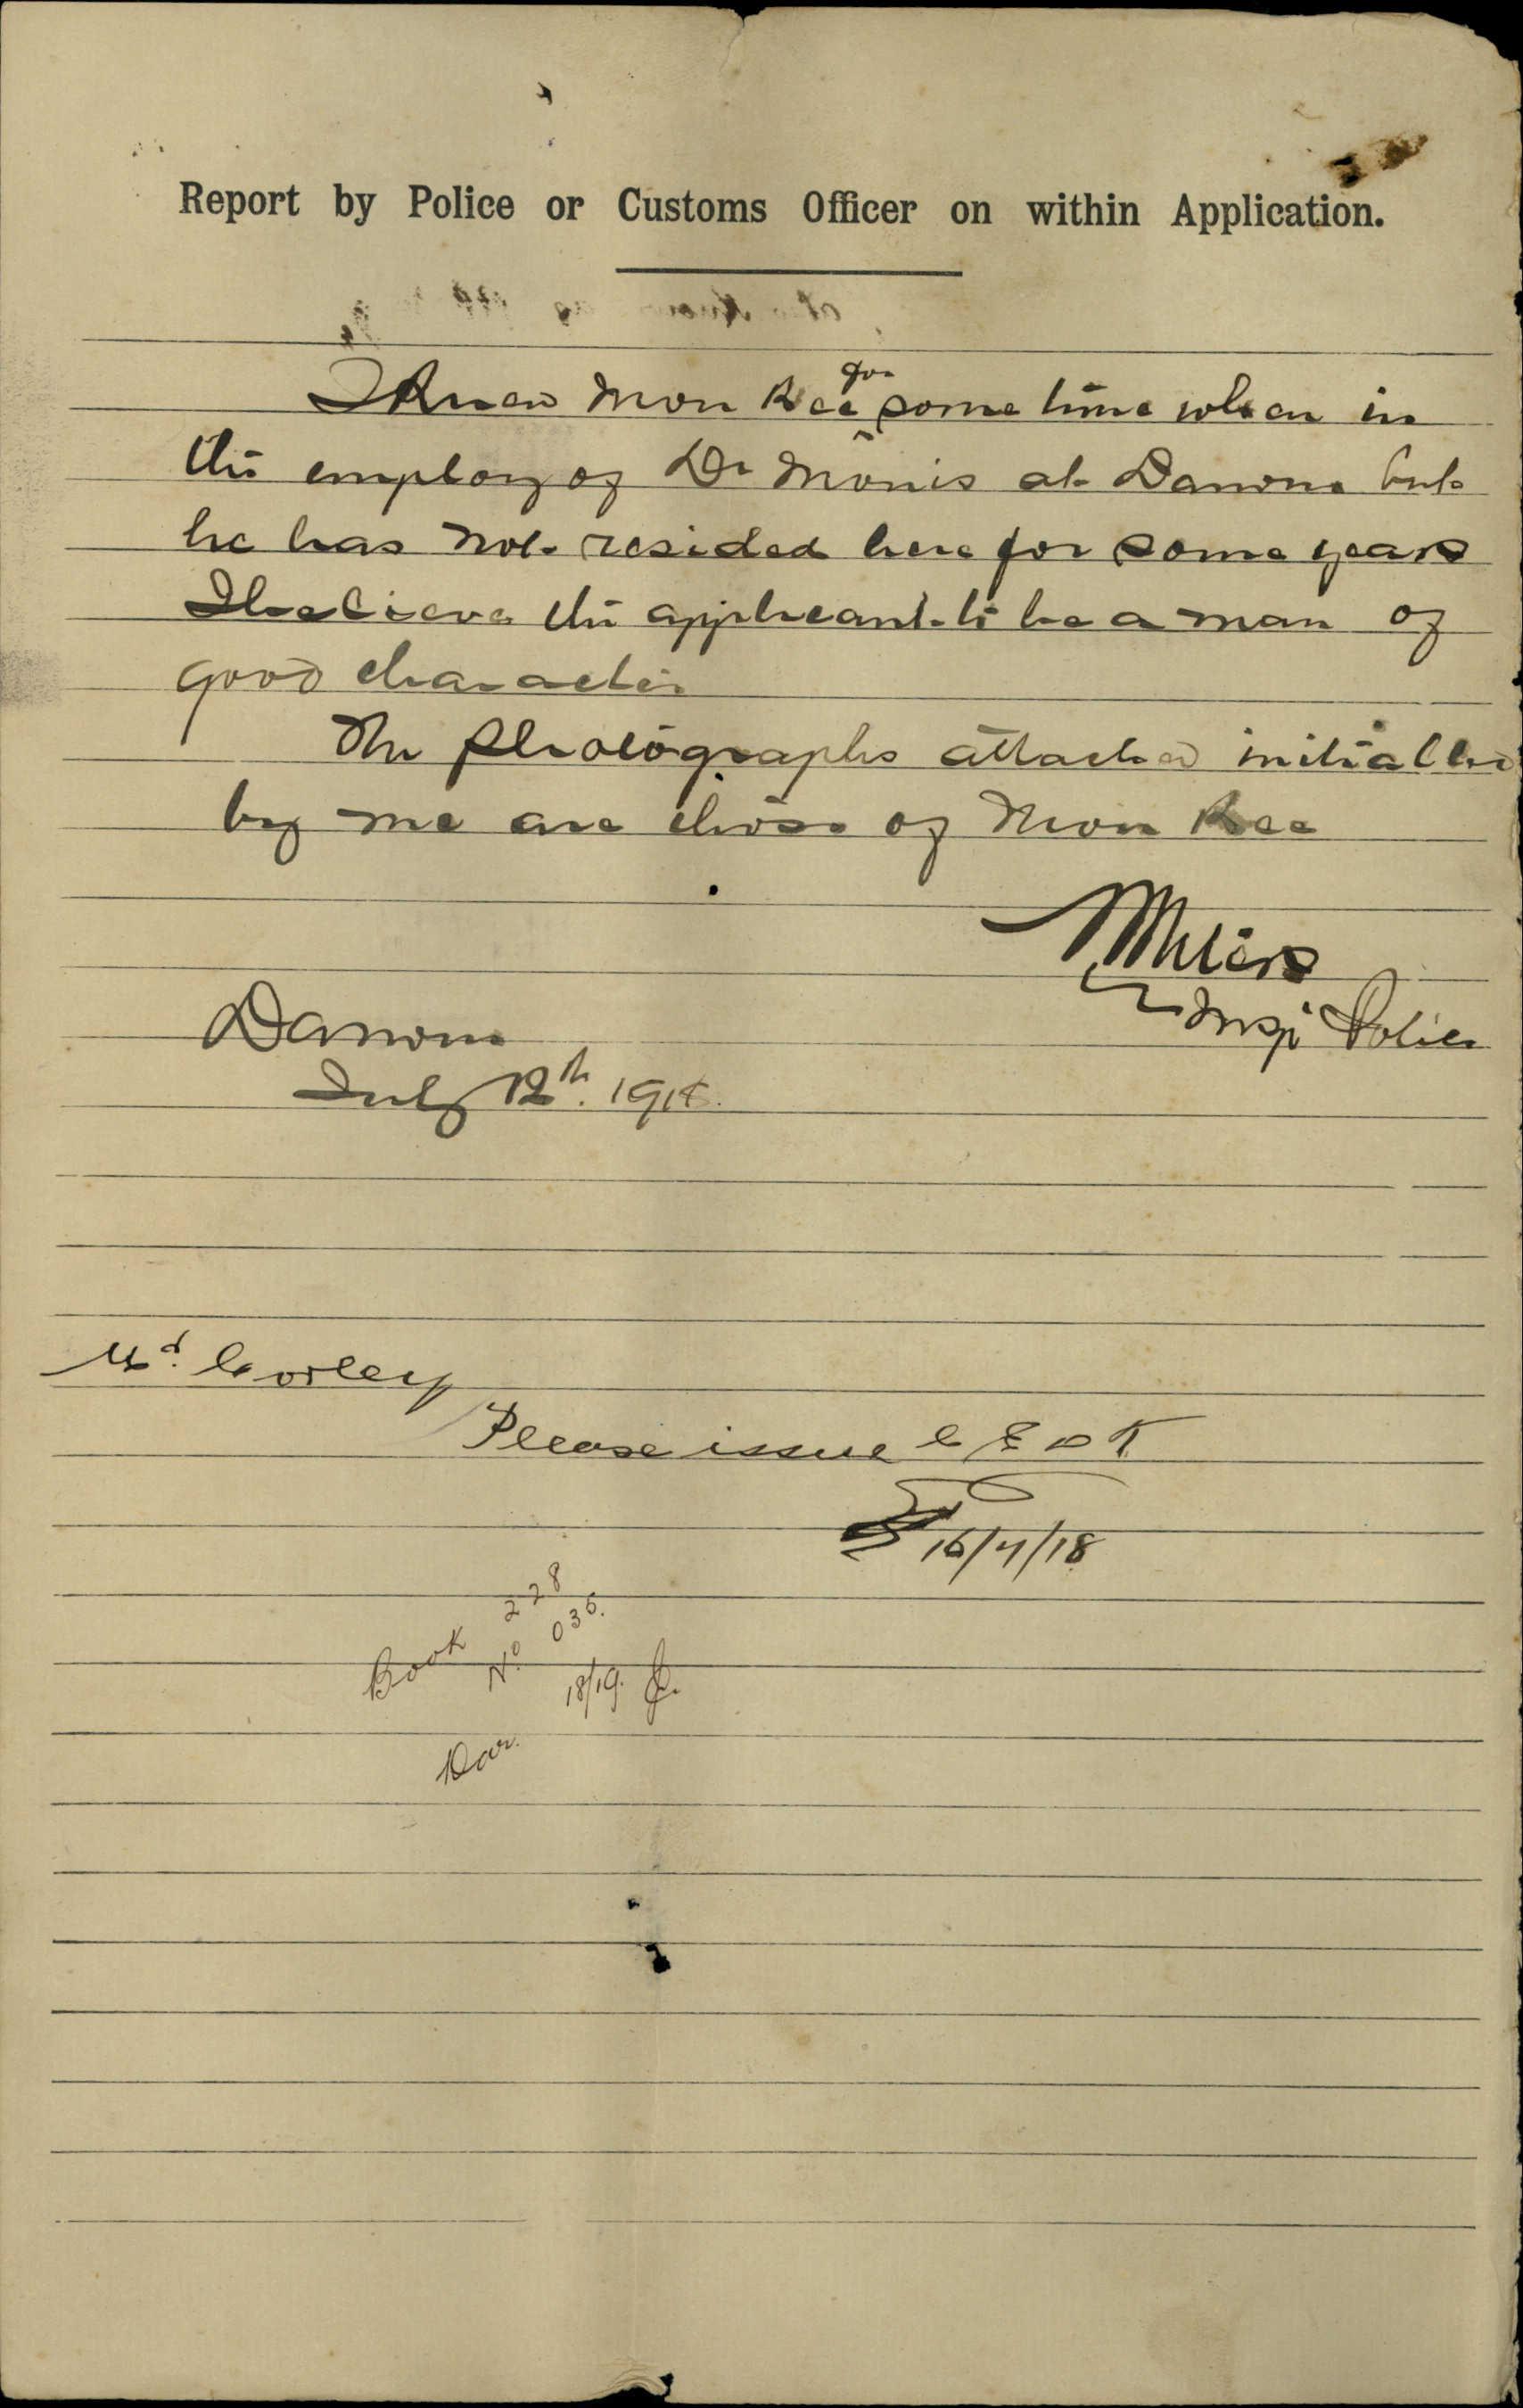 Report by Police or Customs Officer on within Application.
I knew Mon Kee for some time when in
the employ of Dr Morris at Darwin but
he has not resided here for some years
I believe the applicant to be a man of
good character
The photographs attached initialled
by me are those of Mon Kee
Waters
Insp Police
Darwin
July 12th. 1918.
Corley
Please issue C E D T
16/7/18
Book 228
No 036.
18/19.
Dar.